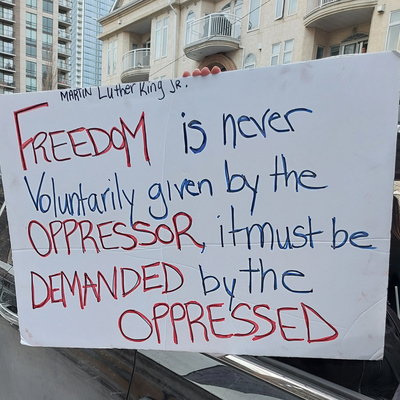 MARTIN Luther King JR.
FREEDOM is never
Voluntarily given by the
OPPRESSOR, it must be
DEMANDED by the
OPPRESSED